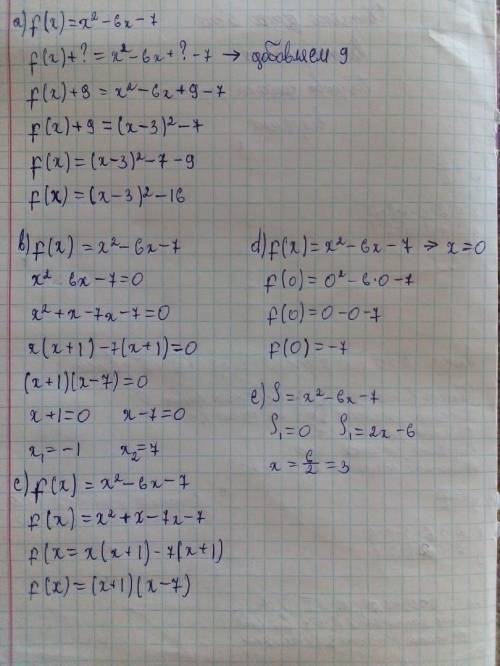 a) f(x)=x²-6x-7
f(x)+?=x²-6x+?-7 → добавляем 9
f(x)+9=x²-6x+9-7
f(x)+9=(x-3)²-7
f(x)=(x-3)²-7-9
f(x)=(x-3)²-16
b) f(x)=x²-6x-7
x² 6x-7=0
x²+x-7x-7=0
x(x+1)-7(x+1)=0
(x+1)(x-7)=0
x+1=0 x-7=0
x₁=-1 x₂=7
c) f(x)=x²-6x-7
f(x)=x²+x-7x-7
f(x=x(x+1)-7(x+1)
f(x)=(x+1)(x-7)
d) f(x)=x²-6x-7 → x=0
f(0)=0²-6·0-7
f(0)=0-0-7
f(0)=-7
e) S=x²-6x-7
S₁=0 S₁=2x-6
x=6/2=3